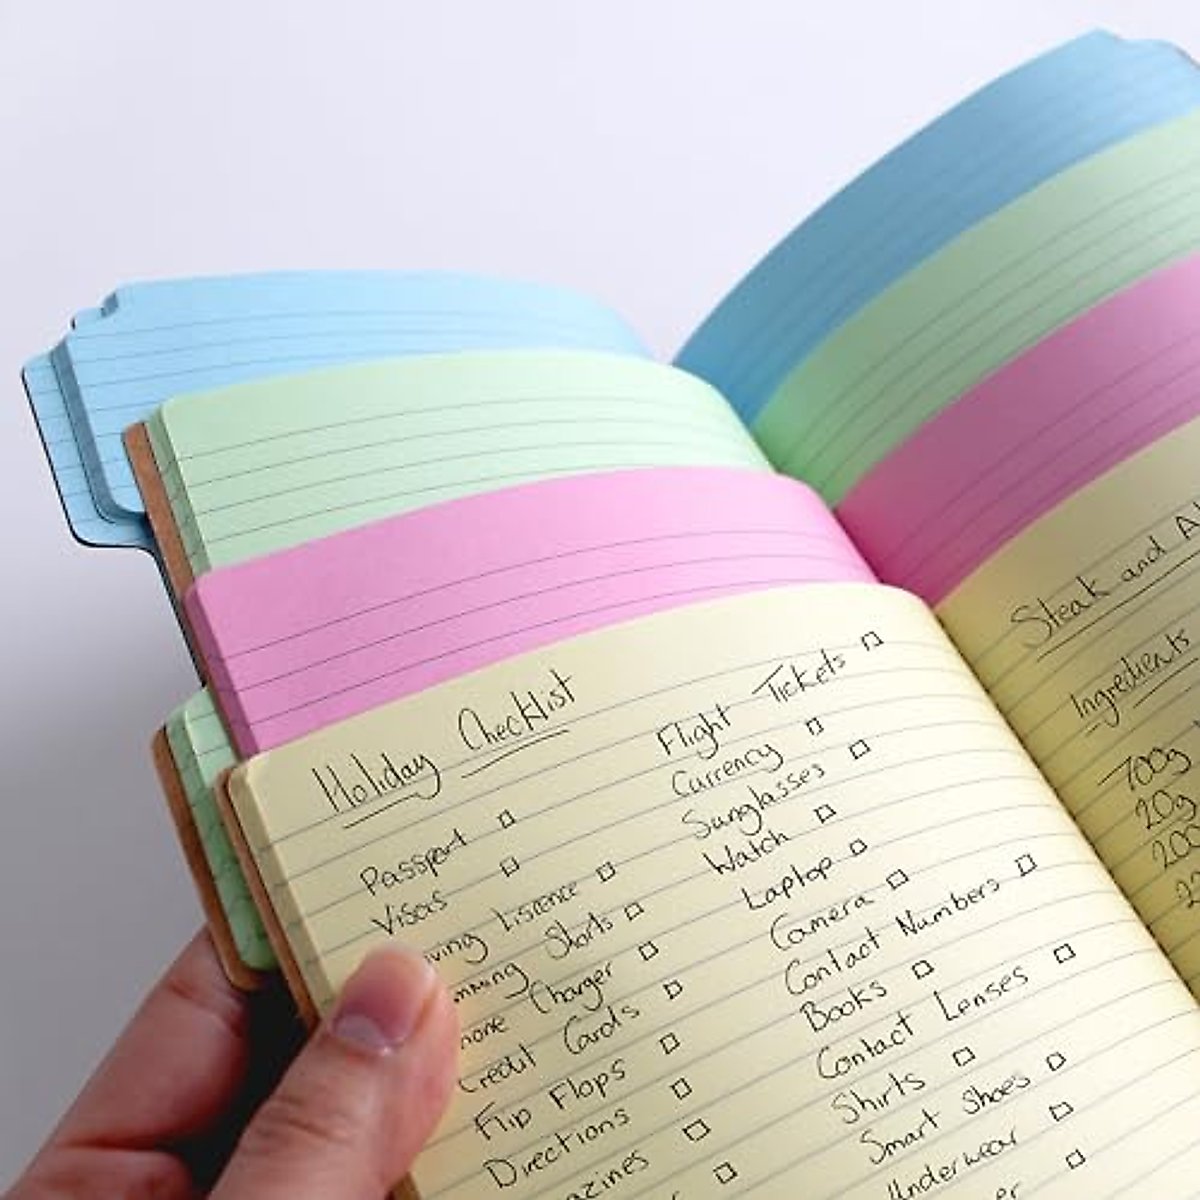 Holiday Checklist
Passport
Visas
Liscence
Shorts
Charger
Credit Cards
Flip Flops
Directions
Flight Tickets
Currency
Sunglasses
Watch
Laptop
Camera
Contact Numbers
Books
Contact Lenses
Shirts
Smart Shoes
Underwear
Steak and
Ingredients
700g
20g